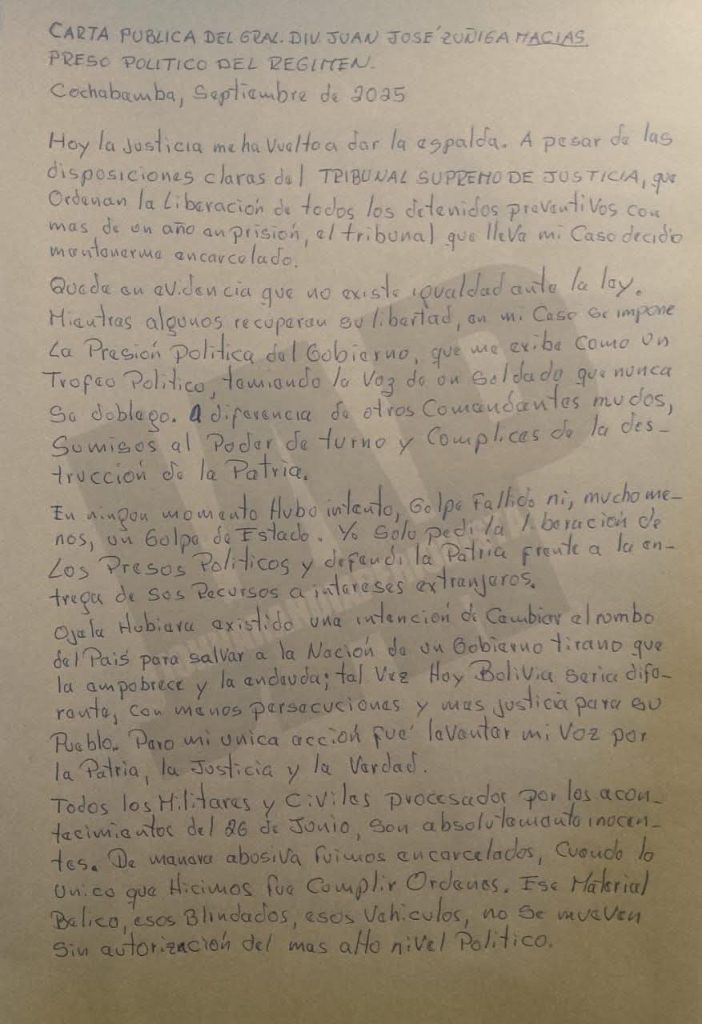 CARTA PUBLICA DEL GRAL. DIV. JUAN JOSÉ ZUÑIGA MACIAS.
PRESO POLITICO DEL REGIMEN.
Cochabamba, Septiembre de 2025
Hoy la justicia me ha vuelto a dar la espalda. A pesar de las
disposiciones claras del TRIBUNAL SUPREMO DE JUSTICIA, que
Ordenan la Liberación de todos los detenidos preventivos con
mas de un año en prisión, el tribunal que lleva mi Caso decidio
mantenerme encarcelado.
Queda en evidencia que no existe igualdad ante la ley.
Mientras algunos recuperan su libertad, en mi Caso se impone
La Presión Politica del Gobierno, que me exibe Como un
Trofeo Politico, temiendo la Voz de un Soldado que nunca
Se doblego. A diferencia de otros Comandantes mudos,
Sumisos al Poder de turno y Complices de la des-
trucción de la Patria.
En ningun momento Hubo intento, Golpe Fallido ni, mucho me-
nos, un Golpe de Estado. Yo Solo pedi la liberación de
Los Presos Politicos y defendi la Patria frente a la en-
trega de sus Recursos a intereses extranjeros.
Ojala Hubiera existido una intención de Cambiar el rumbo
del Pais para salvar a la Nación de un Gobierno tirano que
la empobrece y la endeuda; tal Vez Hoy Bolivia seria dife-
rente, con menos persecuciones y mas justicia para su
Pueblo. Pero mi unica acción fué levantar mi Voz por
la Patria, la Justicia y la Verdad.
Todos los Militares y Civiles procesados por los acon-
tecimientos del 26 de Junio, son absolutamente inocen-
tes. De manera abusiva fuimos encarcelados, Cuando lo
Unico que Hicimos fue Cumplir Ordenes. Ese Material
Belico, esos Blindados, esos Vehiculos, no se mueven
Sin autorización del mas alto nivel Politico.